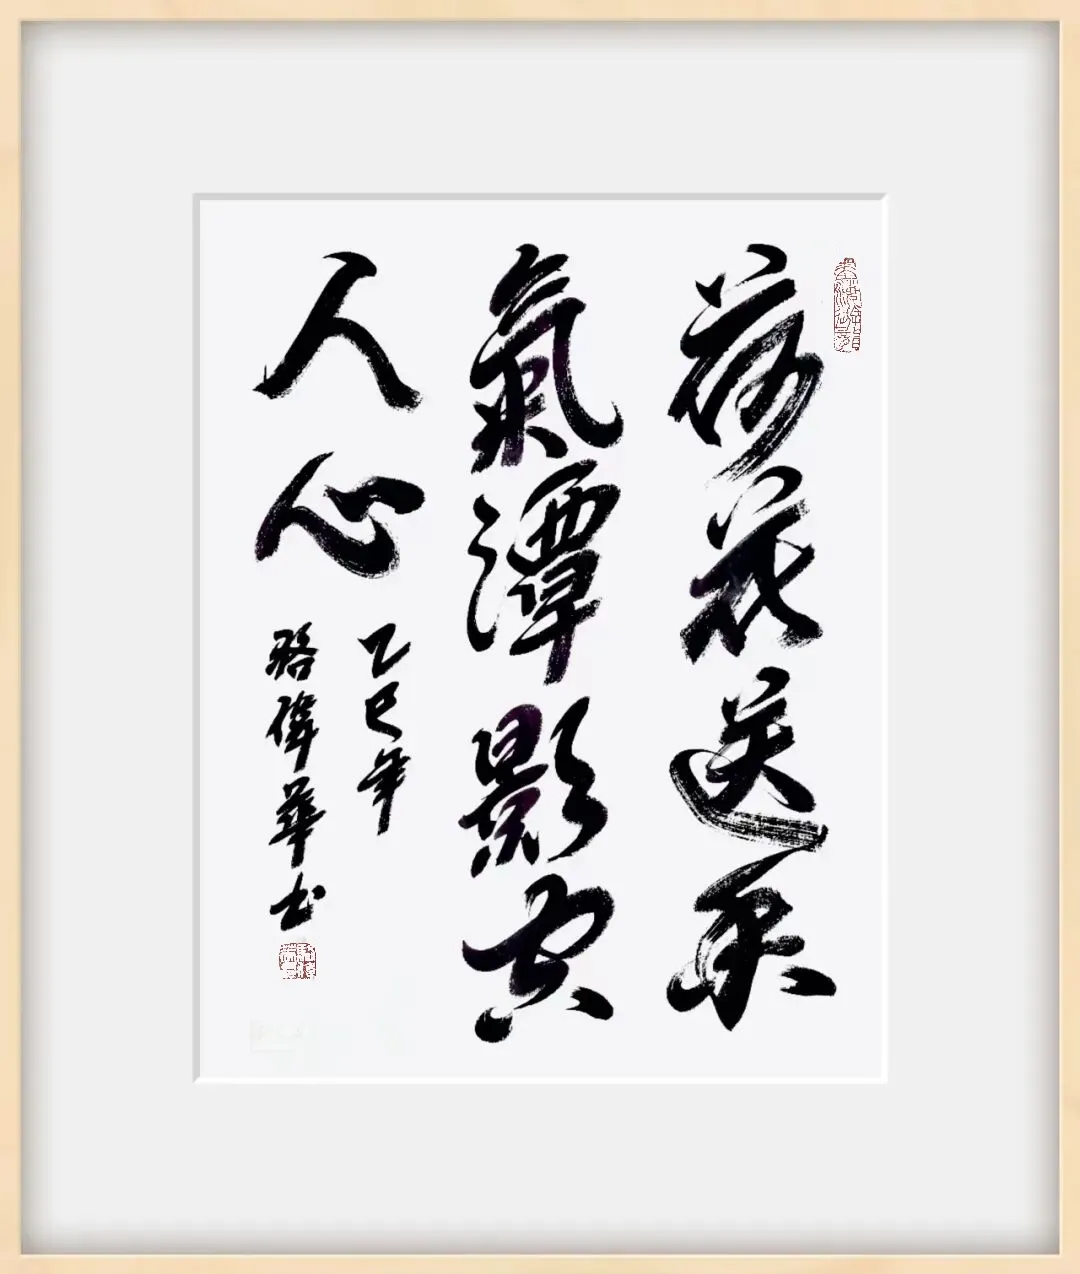 荷花送香
氣潭影空
人心
乙巳年
駱偉華书